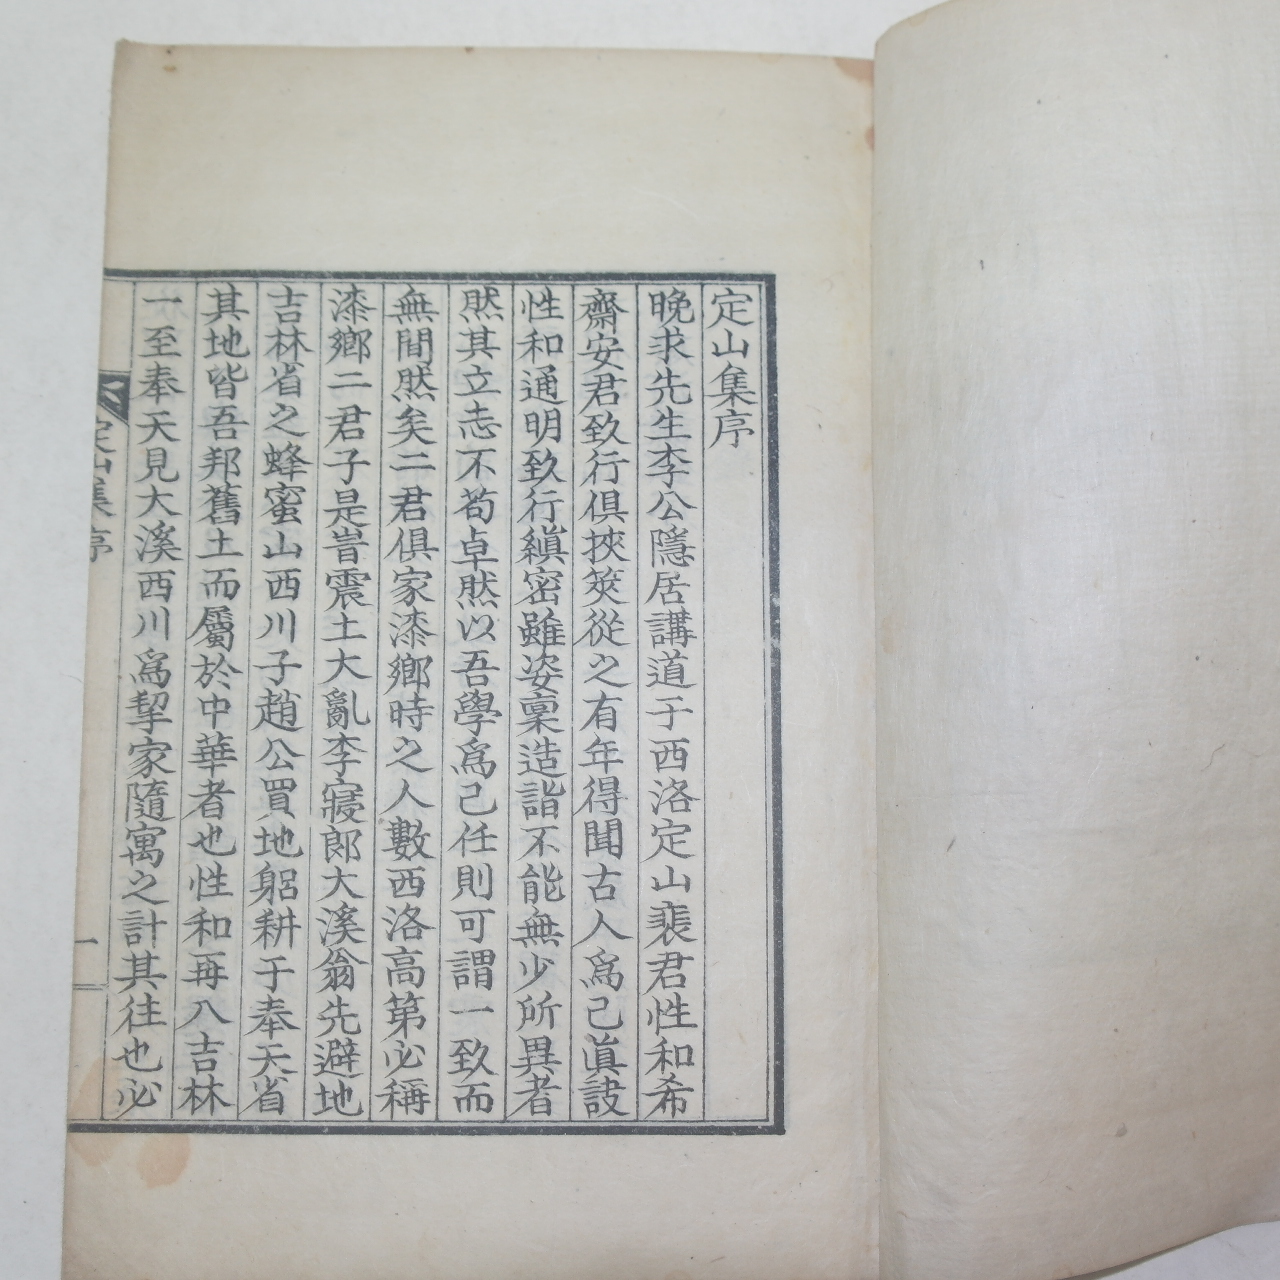 定山集序
晩求先生李公隱居講道于西洛定山裵君性和希
齋安君致行俱挾筴從之有年得聞古人爲己眞詖
性和通明致行縝密雖姿稟造詣不能無少所異者
然其立志不苟卓然以吾學爲己任則可謂一致而
無間然矣二君俱家漆鄕時之人數西洛高第必稱
漆鄕二君子是旹震土大亂李寢郞大溪翁先避地
吉林省之蜂蜜山西川子趙公買地躳耕于奉天省
其地皆吾邦舊土而屬於中華者也性和再入吉林
一至奉天見大溪西川爲挈家隨寓之計其往也必
定山集 序
一